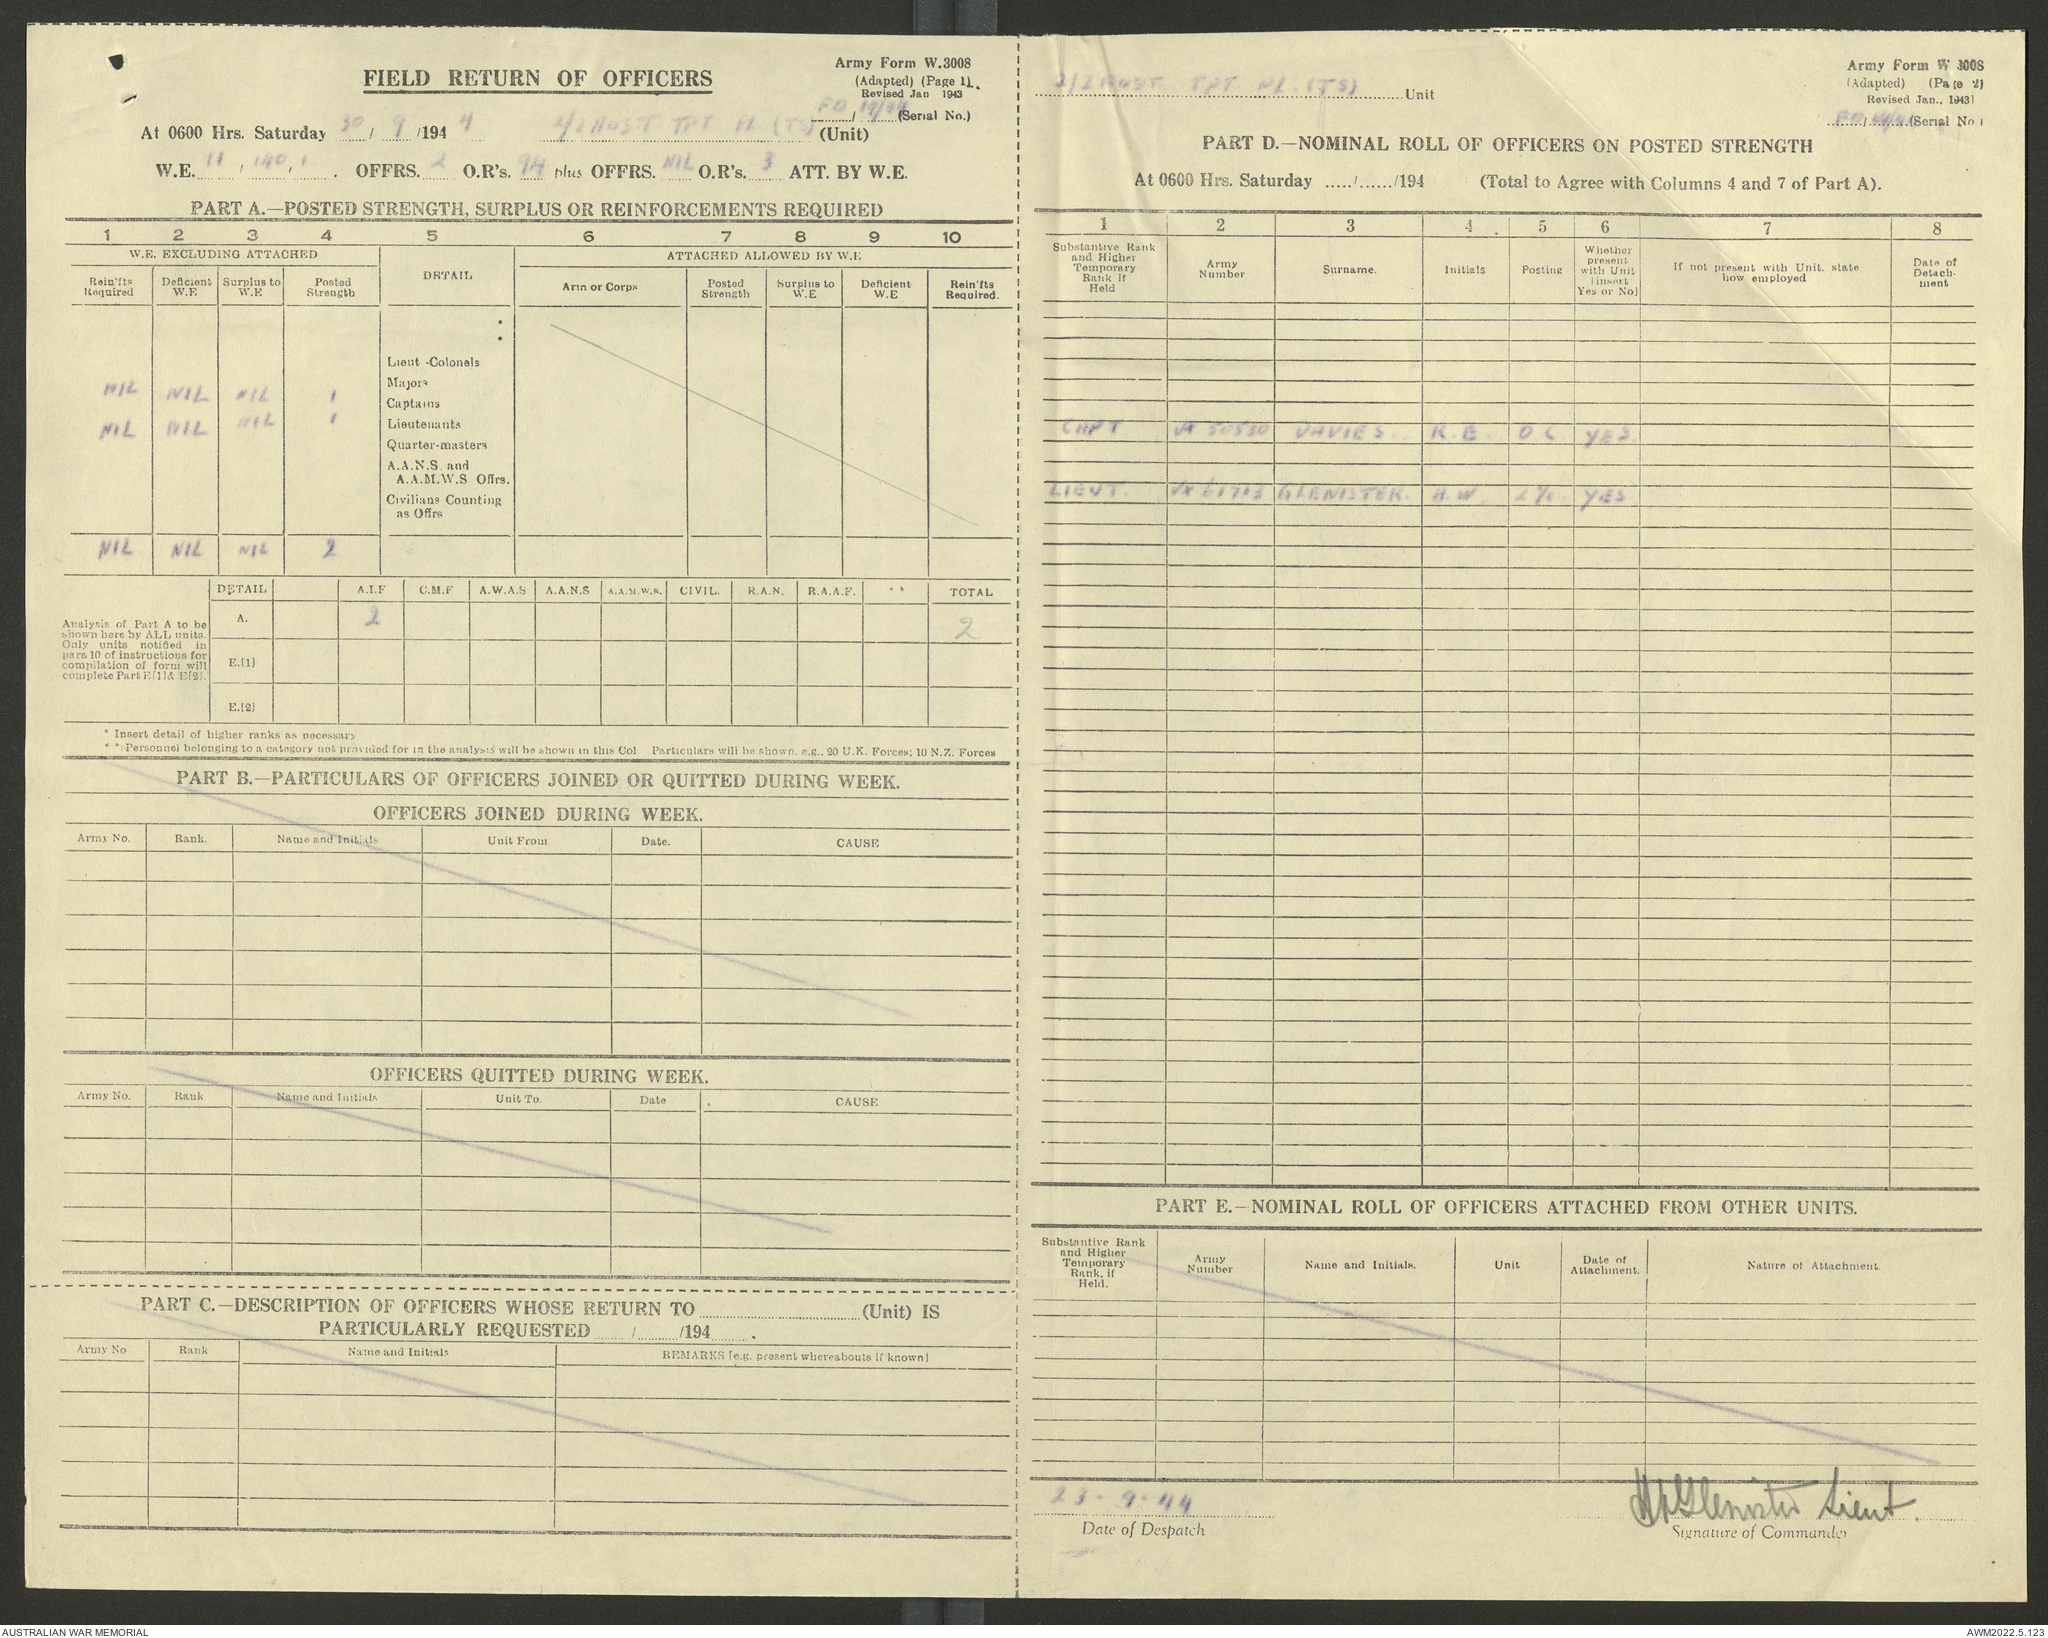 FIELD RETURN OF OFFICERS
Army Form W.3008
(Adapted) (Page 1).
Revised Jan 1943
FO 19/44 (Serial No.)
At 0600 Hrs. Saturday 30/9/1944 2/2 AUST. TPT PL (TS) (Unit)
W.E. 11 / 140 / 1. OFFRS. 2 O.R's. 94 plus OFFRS. NIL O.R's. 3 ATT. BY W.E.
PART A.—POSTED STRENGTH, SURPLUS OR REINFORCEMENTS REQUIRED
1 2 3 4 5 6 7 8 9 10
W.E. EXCLUDING ATTACHED DETAIL ATTACHED ALLOWED BY W.E
Rein'fts Required Deficient W.E Surplus to W.E Posted Strength Arm or Corps Posted Strength Surplus to W.E Deficient W.E Rein'fts Required.
*
*
Lieut -Colonels
Majors
NIL NIL NIL 1 Captains
NIL NIL NIL 1 Lieutenants
Quarter-masters
A.A.N.S. and
A.A.M.W.S Offrs.
Civilians Counting
as Offrs
NIL NIL NIL 2
DETAIL A.I.F C.M.F A.W.A.S A.A.N.S A.A.M.W.S. CIVIL. R.A.N. R.A.A.F. ** TOTAL
Analysis of Part A to be
shown here by ALL units.
Only units notified in
para 10 of instructions for
compilation of form will
complete Part E[1]& E[2].
A. 2 2
E.[1]
E.[2]
* Insert detail of higher ranks as necessary
* * Personnel belonging to a category not provided for in the analysis will be shown in this Col Particulars will be shown, e.g., 20 U.K. Forces; 10 N.Z. Forces
PART B.—PARTICULARS OF OFFICERS JOINED OR QUITTED DURING WEEK.
OFFICERS JOINED DURING WEEK.
Army No. Rank. Name and Initials Unit From Date. CAUSE
OFFICERS QUITTED DURING WEEK.
Army No. Rank Name and Initials Unit To. Date CAUSE
PART C.—DESCRIPTION OF OFFICERS WHOSE RETURN TO (Unit) IS
PARTICULARLY REQUESTED / /194 .
Army No Rank Name and Initials REMARKS [e.g. present whereabouts if known]
2/2 AUST. TPT PL. (TS) Unit
Army Form W 3008
(Adapted) (Page 2)
Revised Jan., 1943]
(Serial No.)
PART D.—NOMINAL ROLL OF OFFICERS ON POSTED STRENGTH
At 0600 Hrs. Saturday ...../....../194 (Total to Agree with Columns 4 and 7 of Part A).
1 2 3 4 5 6 7 8
Substantive Rank and Higher Temporary Rank if Held Army Number Surname. Initials Posting Whether present with Unit [insert Yes or No] If not present with Unit, state how employed Date of Detach-ment
CAPT VX 50550 DAVIES. R.E. O C YES.
LIEUT. VX 61713 GLENISTER. H.W. 2 i/c YES
PART E.—NOMINAL ROLL OF OFFICERS ATTACHED FROM OTHER UNITS.
Substantive Rank and Higher Temporary Rank, if Held. Army Number Name and Initials. Unit Date of Attachment. Nature of Attachment.
23-9-44
Date of Despatch
HWGlenister Lieut.
Signature of Commander
AUSTRALIAN WAR MEMORIAL
AWM2022.5.123